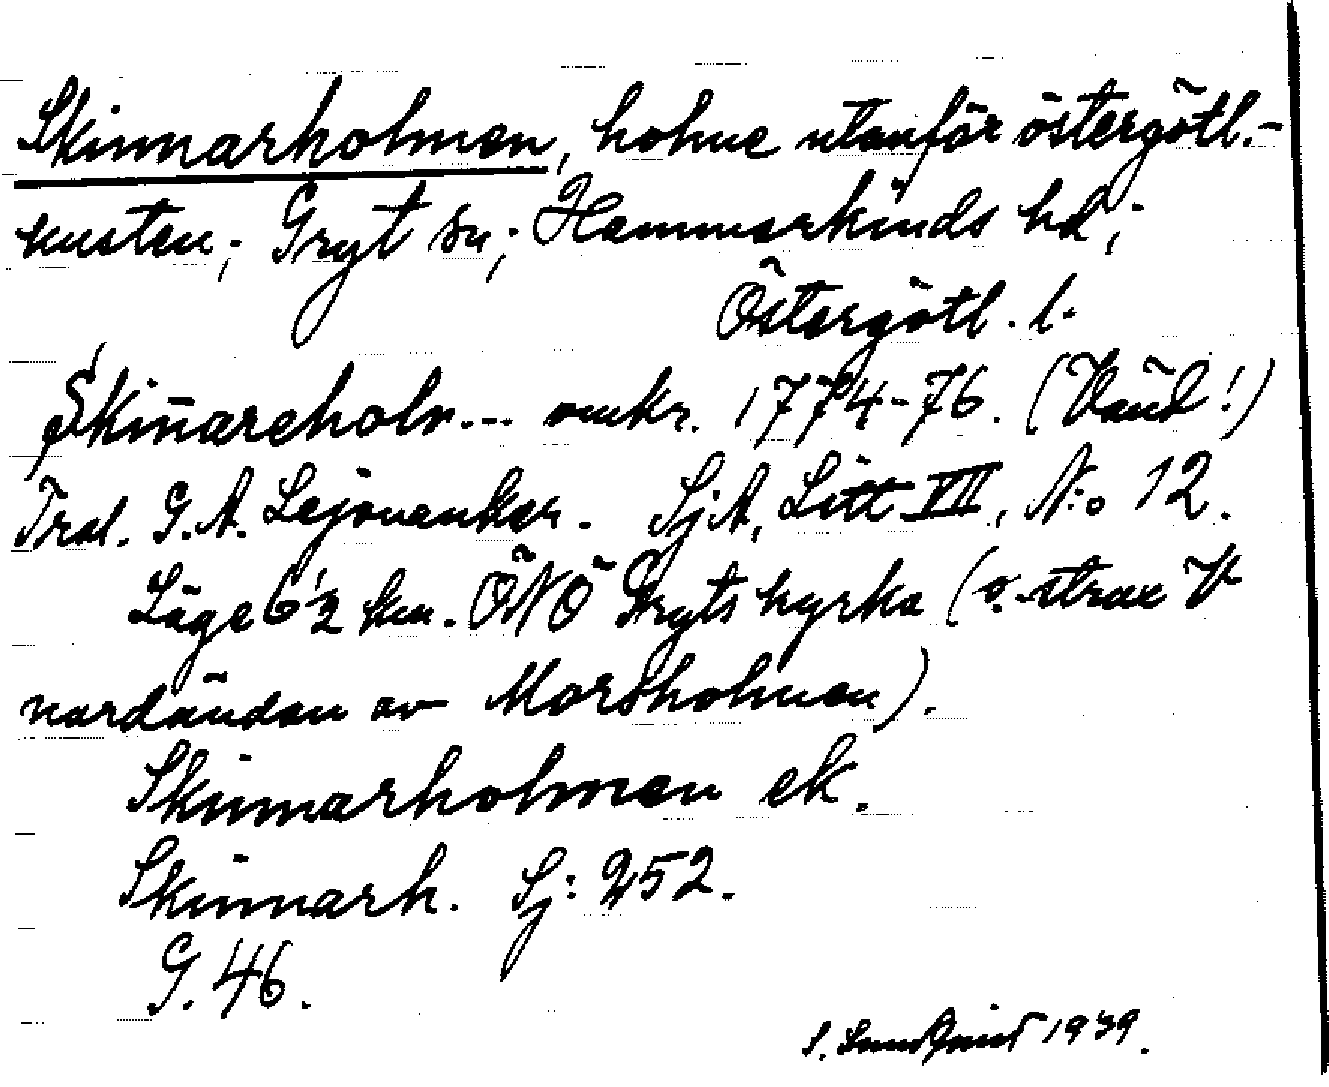 Skinnarholmen, holme utanför östergötl.-
kusten; Gryt sn; Hammarkinds hd;
Östergötl. l.
Skin̄areholm... omkr. 1774-76. (Vänd!)
Trol. G. A. Lejonanker. SjA, Litt VII, N:o 12.
Läge 6 1/2 km. ÖNÖ Gryts kyrka (o. strax V
nordändan av Morsholmen).
Skinnarholmen ek.
Skinnarh. Sj: 252.
G. 46.
S. Sundqvist 1939.